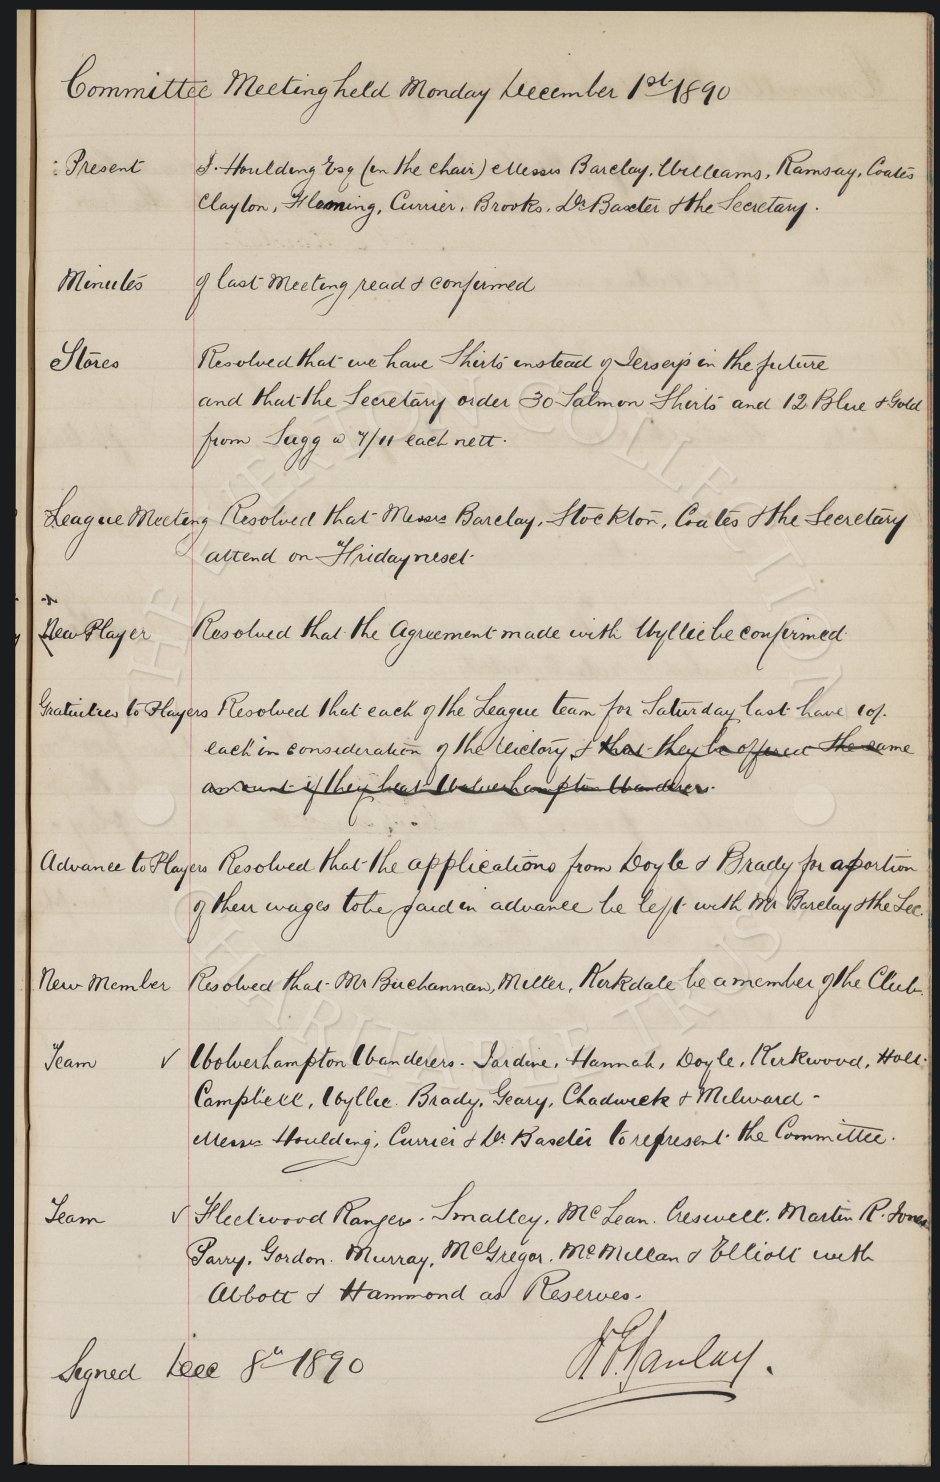 Committee Meeting held Monday December 1st 1890
Present J. Houlding Esq (in the chair) Messrs Barclay, Williams, Ramsay, Coates
Clayton, Fleming, Currier, Brooks, Dr Baxter & the Secretary.
Minutes of last meeting read & confirmed
Stores Resolved that we have Shirts instead of Jerseys in the future
and that the Secretary order 30 Salmon Shirts and 12 Blue & Gold
from Sugg @ 4/11 each nett.
League Meeting Resolved that Messrs Barclay, Stockton, Coates & the Secretary
attend on Friday next.
New Player Resolved that the Agreement made with Wyllie be confirmed
Gratuities to Players Resolved that each of the League team for Saturday last have 10/.
each in consideration of the Victory & that they be offered the same
amount if they beat Wolverhampton Wanderers.
Advance to Players Resolved that the applications from Doyle & Brady for a portion
of their wages to be paid in advance be left with Mr Barclay & the Sec.
New Member Resolved that Mr Buchannan, Miller, Kirkdale be a member of the Club.
Team ✓ Wolverhampton Wanderers. Jardine, Hannah, Doyle, Kirkwood, Holt.
Campbell, Wyllie. Brady, Geary, Chadwick & Milward -
Messrs Houlding, Currier & Dr Baxter to represent the Committee.
Team ✓ Fleetwood Rangers. Smalley, McLean. Creswell. Martin R. Jones
Parry. Gordon. Murray, McGregor. McMillan & Elliott with
Abbott & Hammond as Reserves.
Signed Dec 8th 1890
THE EVERTON COLLECTION
CHARITABLE TRUST